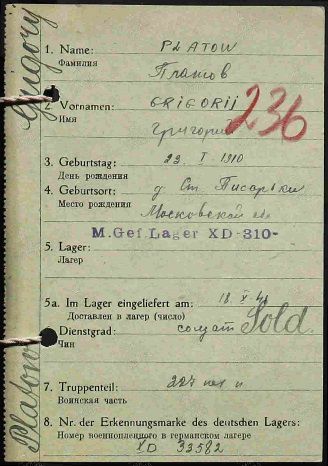 Grigorij
1. Name: PLATOW
Фамилия Платов
2. Vornamen: GRIGORIJ
Имя Григорий
236
3. Geburtstag: 23. I. 1910
День рождения
4. Geburtsort: д. Ст. Писарьки
Место рождения Московской
M. Gef. Lager XD-310-
5. Lager:
Лагер
5a. Im Lager eingeliefert am: 18. X. 41
Доставлен в лагер (число)
Dienstgrad: солдат Sold.
Чин
Platow
7. Truppenteil: 227
Воинская часть
8. Nr. der Erkennungsmarke des deutschen Lagers:
Номер военнопленного в германском лагере
XD 33582